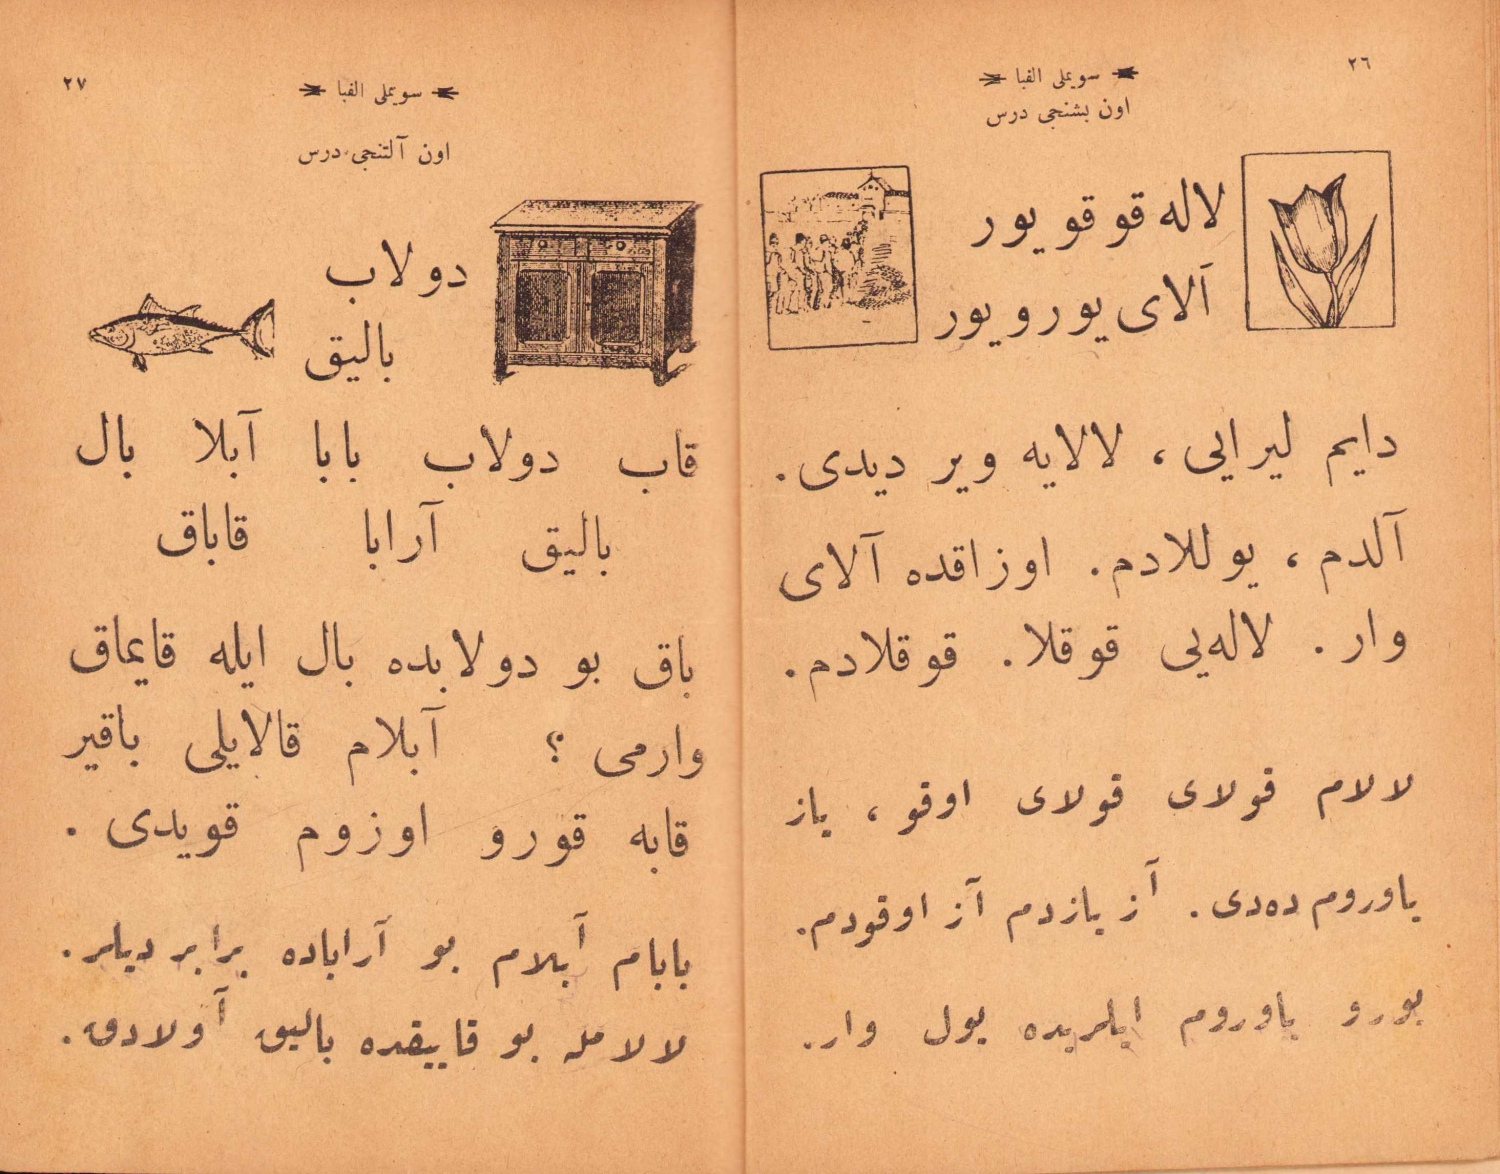 ٢٦
سويملى الفبا
اون بشنجى درس
لاله قوقويور
آلاى يورويور
دايم ليرايى ، لالايه وير ديدى .
آلدم ، يوللادم . اوزاقده آلاى
وار . لاله‌يى قوقلا . قوقلادم .
لالام قولاى قولاى اوقو ، ياز
ياوروم ده‌دى . آز يازدم آز اوقودم .
يورو ياوروم ايلريده يول وار .
٢٧
سويملى الفبا
اون آلتنجى درس
دولاب
باليق
قاب دولاب بابا آبلا بال
باليق آرابا قاباق
باق بو دولابده بال ايله قايماق
وارمى ؟ آبلام قالايلى باقير
قابه قورو اوزوم قويدى .
بابام آبلام بو آراباده برابر ديلر .
لالامله بو قاييقده باليق آولادق .